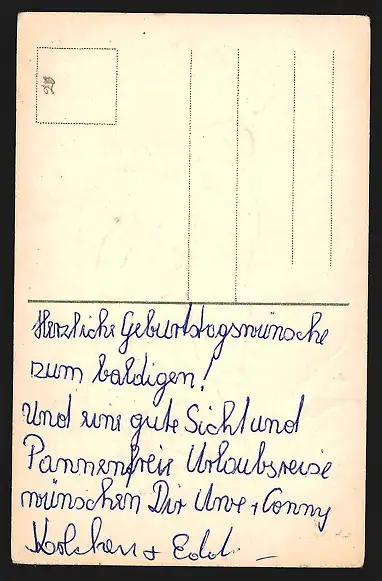 Herzliche Geburtstagswünsche
zum baldigen!
Und eine gute Sicht und
Pannenfreie Urlaubsreise
wünschen Dir Uwe + Conny
+